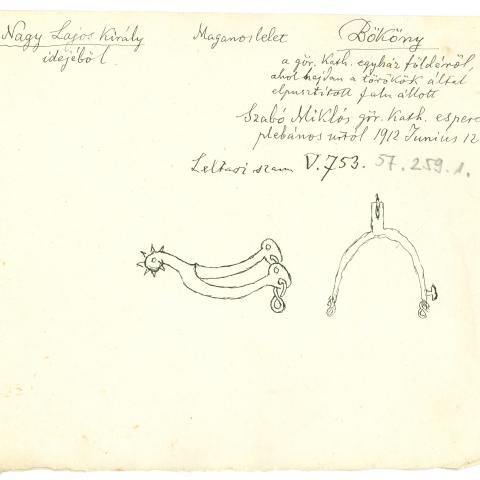 Nagy Lajos Király
idejéből
Maganoslelet
Bököny
a gör. Kath. egyház földéről,
ahol hejdan a törökök által
elpusztitott falu állott
Szabó Miklós gör. Kath. esperes
plebános úrtól 1912 Junius 12
Leltari szam V.753. 57.259.1.